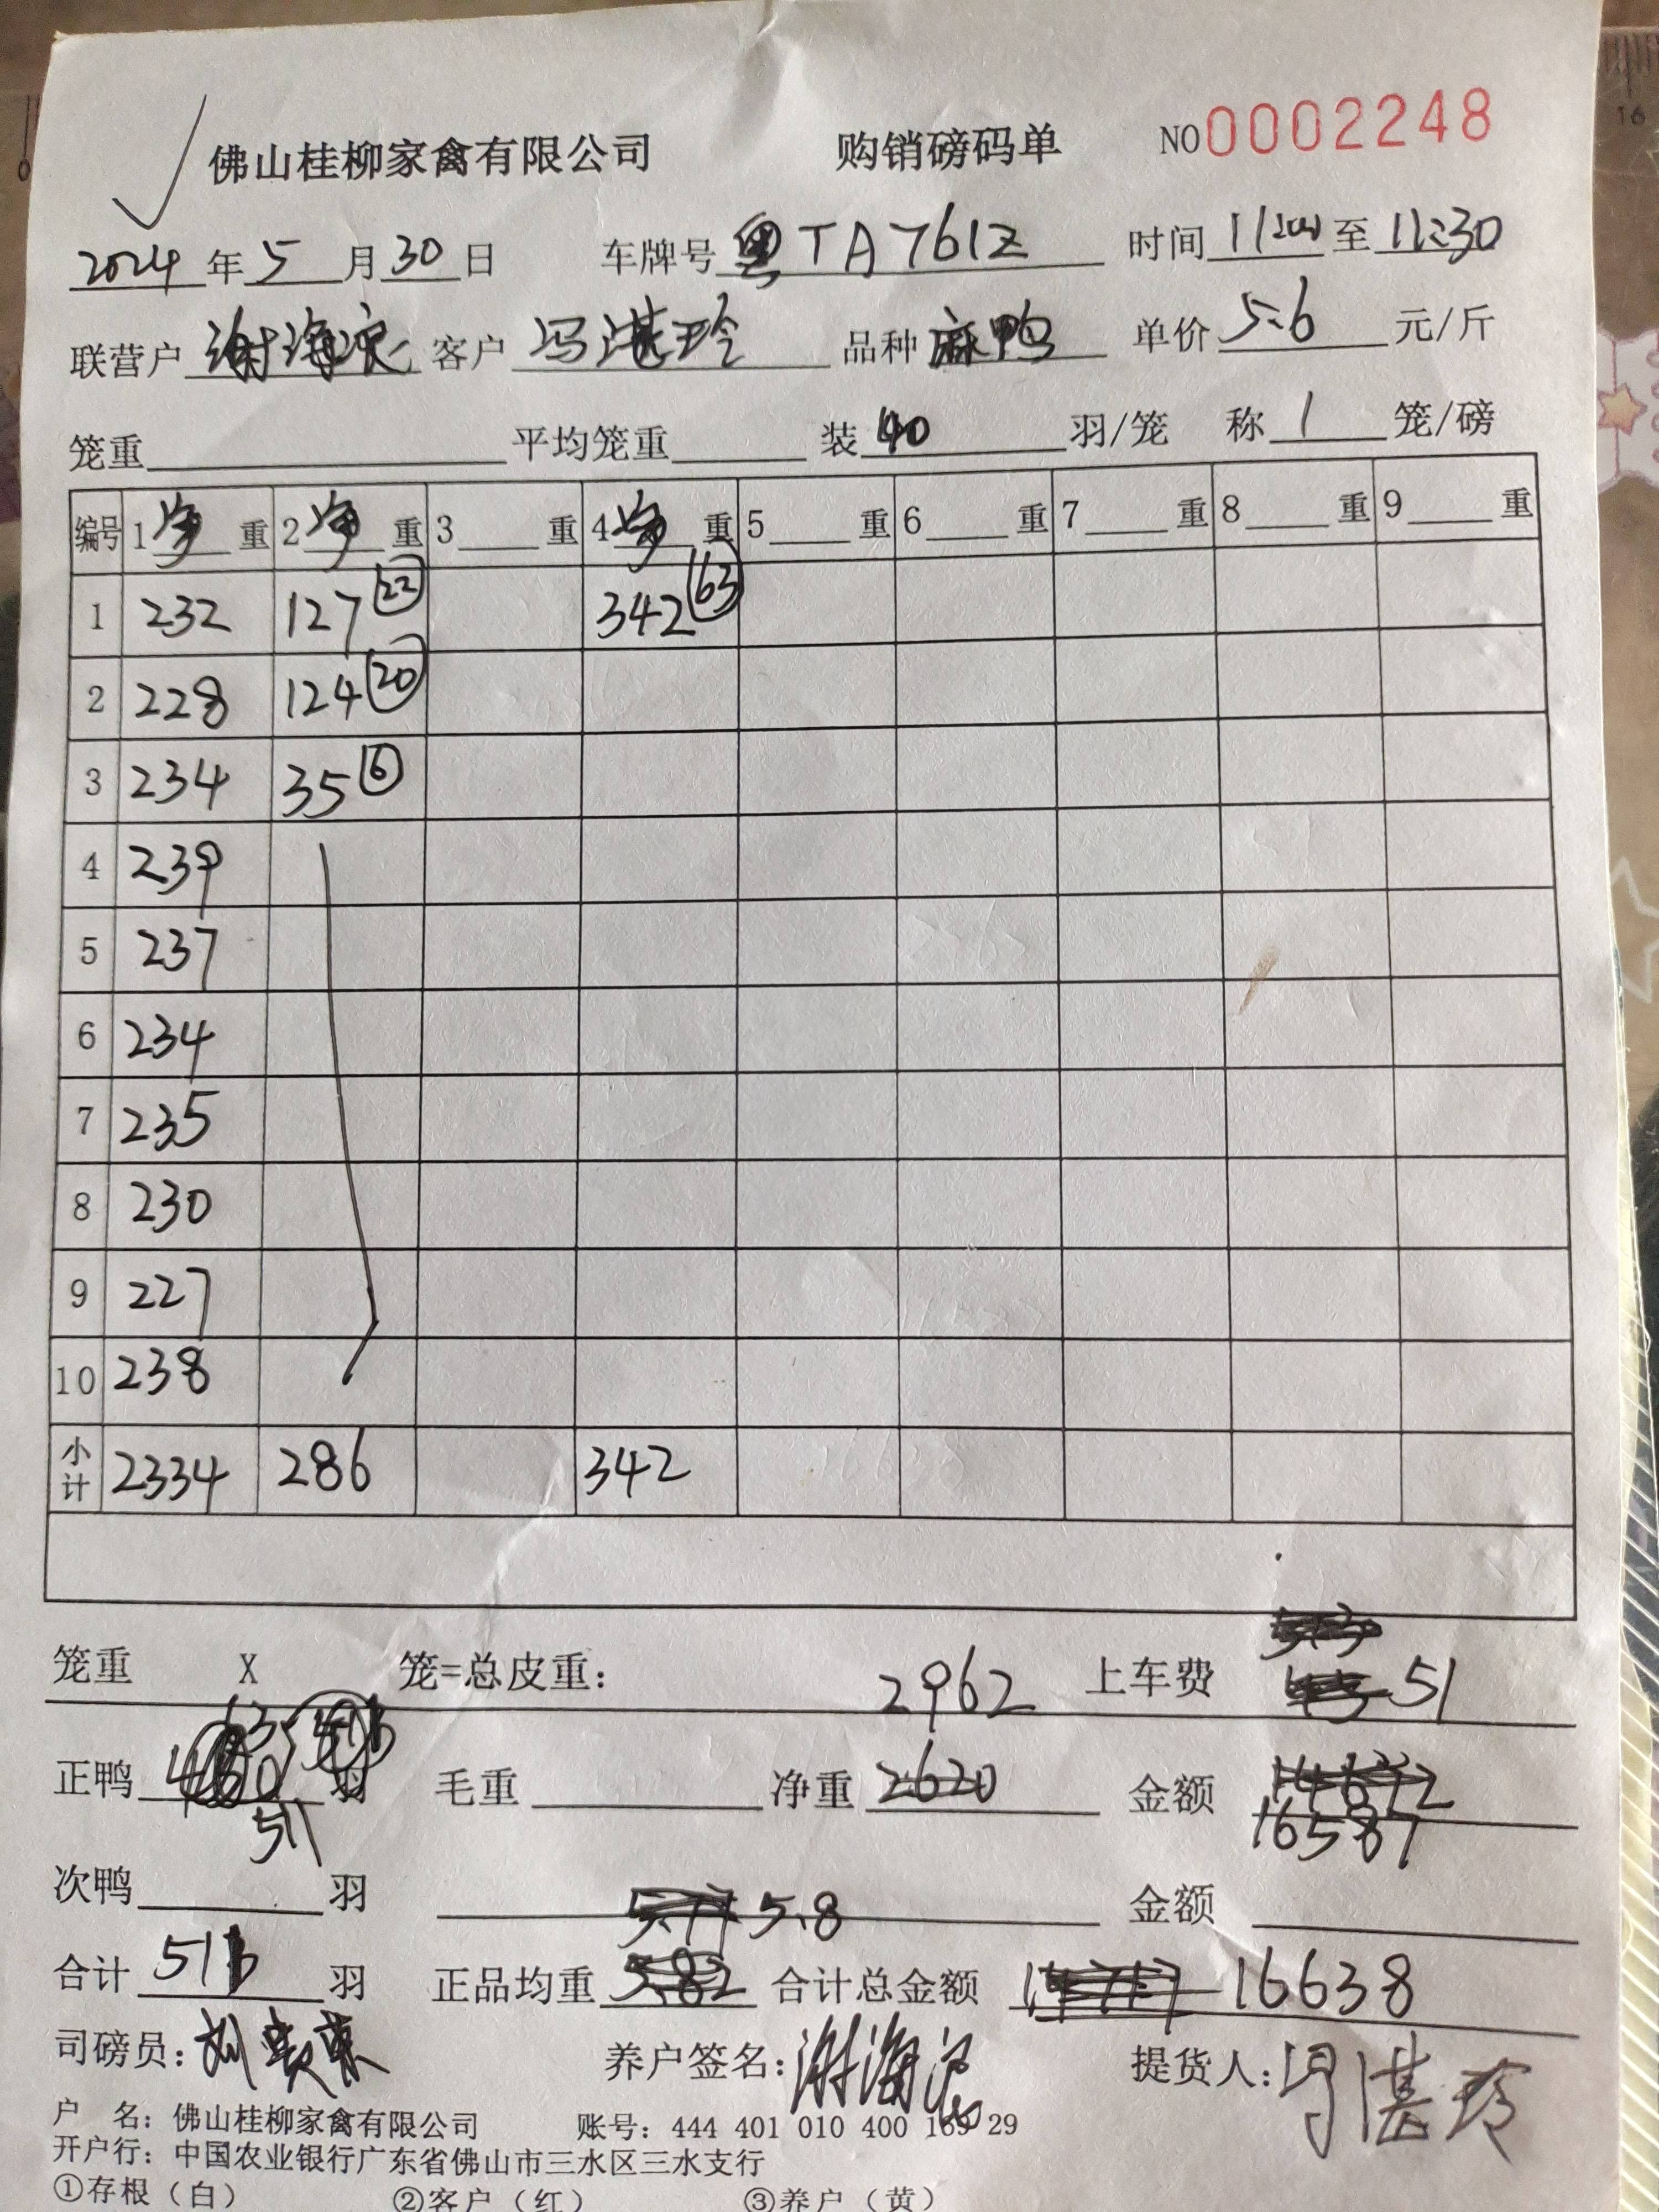 佛山桂柳家禽有限公司 购销磅码单 NO 0002248
2024年5月30日 车牌号 粤TA761Z 时间 11:20 至 11:30
联营户 谢海 客户 冯湛玲 品种 麻鸭 单价 5.6 元/斤
笼重 平均笼重 装 40 羽/笼 称 1 笼/磅
编号 1净重 2净重 3 重 4净重 5 重 6 重 7 重 8 重 9 重
1 232 127 22 342 63
2 228 124 20
3 234 35 6
4 239
5 237
6 234
7 235
8 230
9 227
10 238
小计 2334 286 342
笼重 X 笼=总皮重: 2962 上车费 51
正鸭 羽 毛重 净重 2620 金额 14672
511 16587
次鸭 羽 5.8 金额
合计 511 羽 正品均重 5.82 合计总金额 16638
司磅员: 养户签名: 谢海 提货人: 冯湛玲
户 名: 佛山桂柳家禽有限公司 账号: 444 401 010 400 169 29
开户行: 中国农业银行广东省佛山市三水区三水支行
①存根(白) ②客户(红) ③养户(黄)